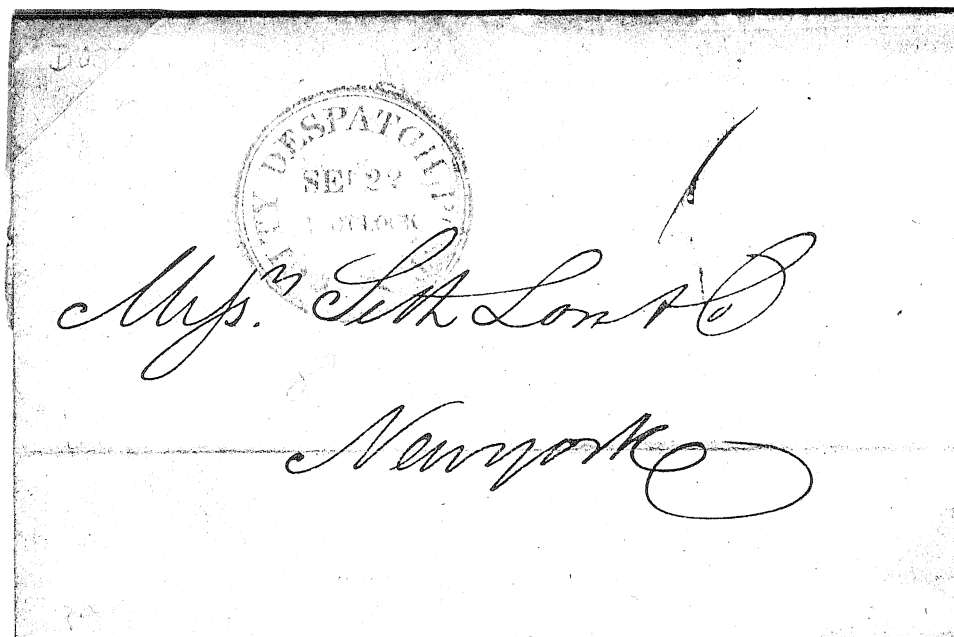 CITY DESPATCH POST
SEP
O'CLOCK
Messrs. Seth Low & Co
Newyork